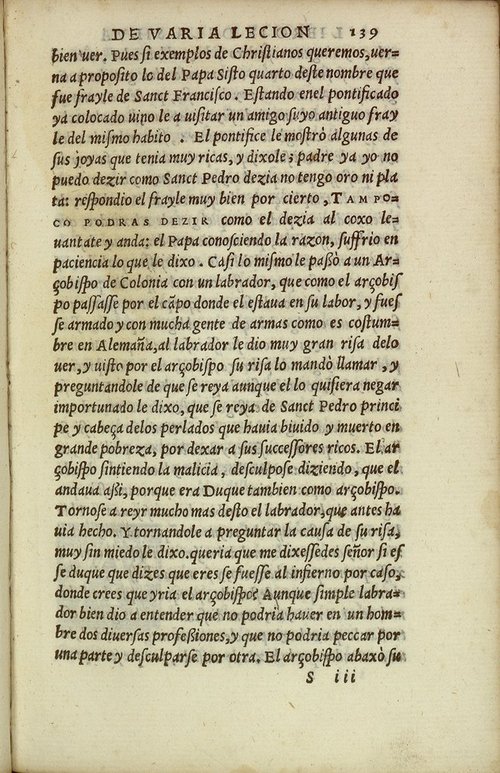 DE VARIA LECION 139
bien uer. Pues si exemplos de Christianos queremos, uer=
na a proposito lo del Papa Sisto quarto deste nombre que
fue frayle de Sanct Francisco. Estando enel pontificado
ya colocado uino le a uisitar un amigo suyo antiguo fray
le del mismo habito . El pontifice le mostrò algunas de
sus joyas que tenia muy ricas, y dixole; padre ya yo no
puedo dezir como Sanct Pedro dezia no tengo oro ni pla
ta: respondio el frayle muy bien por cierto, TAMPO=
CO PODRAS DEZIR como el dezia al coxo le=
uantate y anda: el Papa conosciendo la razon, suffrio en
paciencia lo que le dixo. Casi lo mismo le passò a un Ar=
çobispo de Colonia con un labrador, que como el arçobis
po passasse por el cãpo donde el estaua en su labor, y fues
se armado y con mucha gente de armas como es costum=
bre en Alemaña, al labrador le dio muy gran risa delo
uer, y uisto por el arçobispo su risa lo mandò llamar, y
preguntandole de que se reya aunque el lo quisiera negar
importunado le dixo, que se reya de Sanct Pedro princi
pe y cabeça delos perlados que hauia biuido y muerto en
grande pobreza, por dexar a sus successores ricos. El ar
çobispo sintiendo la malicia, desculpose diziendo, que el
andaua assi, porque era Duque tambien como arçobispo.
Tornose a reyr mucho mas desto el labrador, que antes ha
uia hecho. Y tornandole a preguntar la causa de su risa,
muy sin miedo le dixo. queria que me dixessedes señor si es
se duque que dizes que eres se fuesse al infierno por caso,
donde crees que yria el arçobispo? Aunque simple labra=
dor bien dio a entender que no podria hauer en un hom=
bre dos diuersas professiones, y que no podria peccar por
una parte y desculparse por otra. El arçobispo abaxò su
S iii